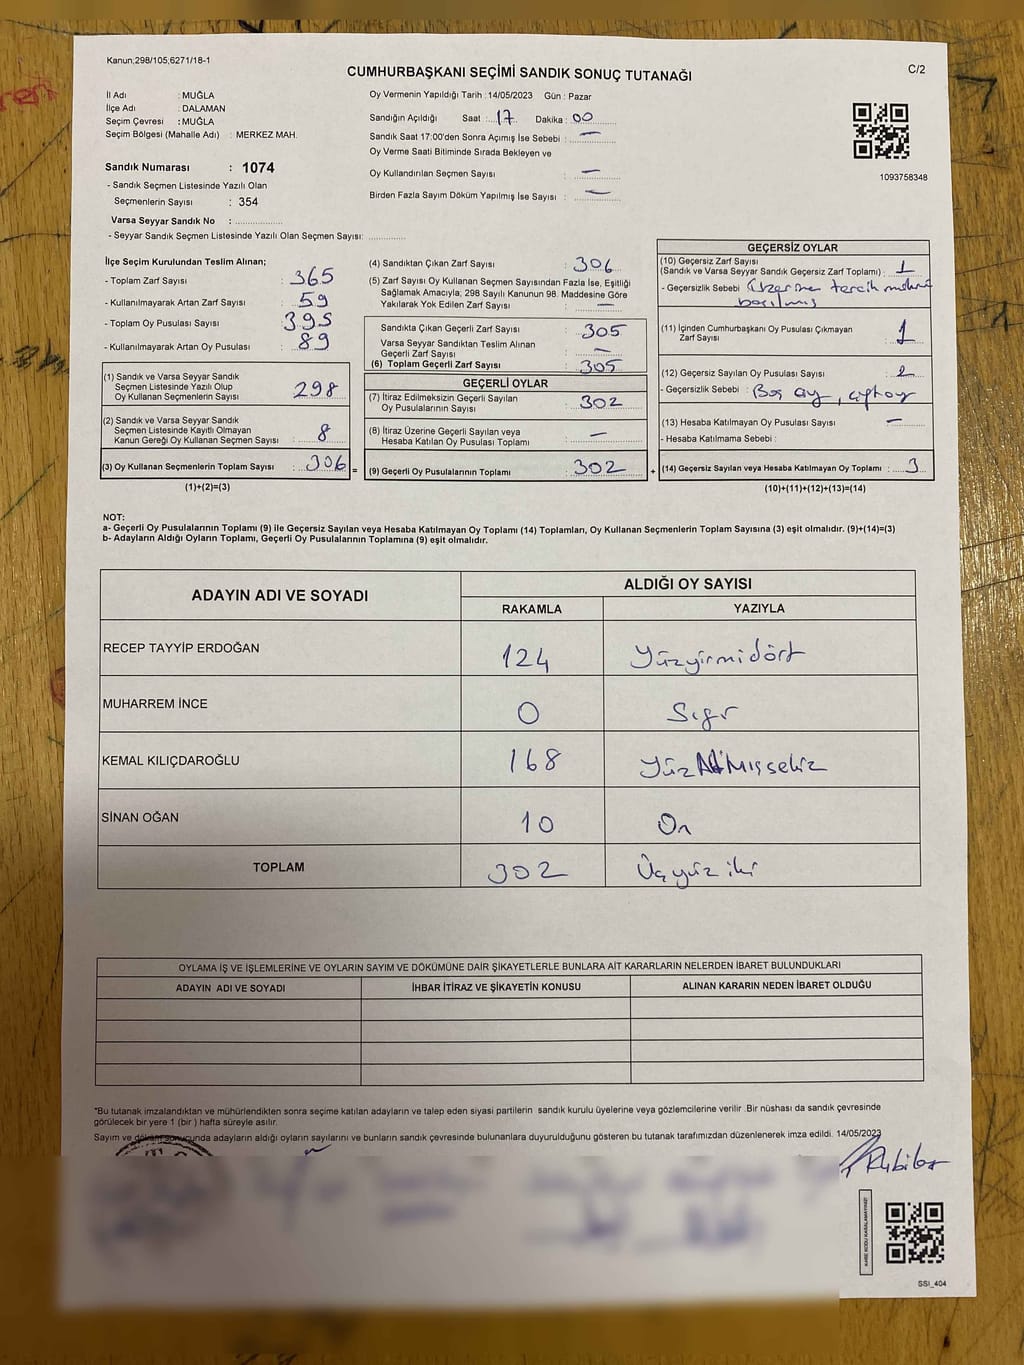 Kanun;298/105;6271/18-1
C/2
CUMHURBAŞKANI SEÇİMİ SANDIK SONUÇ TUTANAĞI
İl Adı : MUĞLA
İlçe Adı : DALAMAN
Seçim Çevresi : MUĞLA
Seçim Bölgesi (Mahalle Adı) : MERKEZ MAH.
Sandık Numarası : 1074
- Sandık Seçmen Listesinde Yazılı Olan
Seçmenlerin Sayısı : 354
Varsa Seyyar Sandık No :
- Seyyar Sandık Seçmen Listesinde Yazılı Olan Seçmen Sayısı:
Oy Vermenin Yapıldığı Tarih :14/05/2023 Gün : Pazar
Sandığın Açıldığı Saat : 17 Dakika : 00
Sandık Saat 17:00'den Sonra Açımış İse Sebebi : —
Oy Verme Saati Bitiminde Sırada Bekleyen ve
Oy Kullandırılan Seçmen Sayısı : —
Birden Fazla Sayım Döküm Yapılmış İse Sayısı : —
1093758348
İlçe Seçim Kurulundan Teslim Alınan;
- Toplam Zarf Sayısı : 365
- Kullanılmayarak Artan Zarf Sayısı : 59
- Toplam Oy Pusulası Sayısı : 395
- Kullanılmayarak Artan Oy Pusulası : 89
(1) Sandık ve Varsa Seyyar Sandık
Seçmen Listesinde Yazılı Olup
Oy Kullanan Seçmenlerin Sayısı : 298
(2) Sandık ve Varsa Seyyar Sandık
Seçmen Listesinde Kayıtlı Olmayan
Kanun Gereği Oy Kullanan Seçmen Sayısı : 8
(3) Oy Kullanan Seçmenlerin Toplam Sayısı : 306 =
(1)+(2)=(3)
(4) Sandıktan Çıkan Zarf Sayısı : 306
(5) Zarf Sayısı Oy Kullanan Seçmen Sayısından Fazla İse, Eşitliği
Sağlamak Amacıyla; 298 Sayılı Kanunun 98. Maddesine Göre
Yakılarak Yok Edilen Zarf Sayısı : —
Sandıkta Çıkan Geçerli Zarf Sayısı : 305
Varsa Seyyar Sandıktan Teslim Alınan
Geçerli Zarf Sayısı : —
(6) Toplam Geçerli Zarf Sayısı : 305
GEÇERLİ OYLAR
(7) İtiraz Edilmeksizin Geçerli Sayılan
Oy Pusulalarının Sayısı : 302
(8) İtiraz Üzerine Geçerli Sayılan veya
Hesaba Katılan Oy Pusulası Toplamı : —
(9) Geçerli Oy Pusulalarının Toplamı : 302 +
GEÇERSİZ OYLAR
(10) Geçersiz Zarf Sayısı
(Sandık ve Varsa Seyyar Sandık Geçersiz Zarf Toplamı) : 1
- Geçersizlik Sebebi : Üzerine tercih mührü
basılmış
(11) İçinden Cumhurbaşkanı Oy Pusulası Çıkmayan
Zarf Sayısı : 1
(12) Geçersiz Sayılan Oy Pusulası Sayısı :
- Geçersizlik Sebebi : Boş oy, çift oy
(13) Hesaba Katılmayan Oy Pusulası Sayısı : —
- Hesaba Katılmama Sebebi :
(14) Geçersiz Sayılan veya Hesaba Katılmayan Oy Toplamı : 3
(10)+(11)+(12)+(13)=(14)
NOT:
a- Geçerli Oy Pusulalarının Toplamı (9) ile Geçersiz Sayılan veya Hesaba Katılmayan Oy Toplamı (14) Toplamları, Oy Kullanan Seçmenlerin Toplam Sayısına (3) eşit olmalıdır. (9)+(14)=(3)
b- Adayların Aldığı Oyların Toplamı, Geçerli Oy Pusulalarının Toplamına (9) eşit olmalıdır.
ADAYIN ADI VE SOYADI ALDIĞI OY SAYISI
RAKAMLA YAZIYLA
RECEP TAYYİP ERDOĞAN 124 Yüzyirmidört
MUHARREM İNCE 0 Sıfır
KEMAL KILIÇDAROĞLU 168 YüzAltMışsekiz
SİNAN OĞAN 10 On
TOPLAM 302 Üçyüziki
OYLAMA İŞ VE İŞLEMLERİNE VE OYLARIN SAYIM VE DÖKÜMÜNE DAİR ŞİKAYETLERLE BUNLARA AİT KARARLARIN NELERDEN İBARET BULUNDUKLARI
ADAYIN ADI VE SOYADI İHBAR İTİRAZ VE ŞİKAYETİN KONUSU ALINAN KARARIN NEDEN İBARET OLDUĞU
*Bu tutanak imzalandıktan ve mühürlendikten sonra seçime katılan adayların ve talep eden siyasi partilerin sandık kurulu üyelerine veya gözlemcilerine verilir .Bir nüshası da sandık çevresinde
görülecek bir yere 1 (bir ) hafta süreyle asılır.
Sayım ve döküm sonucunda adayların aldığı oyların sayılarını ve bunların sandık çevresinde bulunanlara duyurulduğunu gösteren bu tutanak tarafımızdan düzenlenerek imza edildi. 14/05/2023
SSI_404